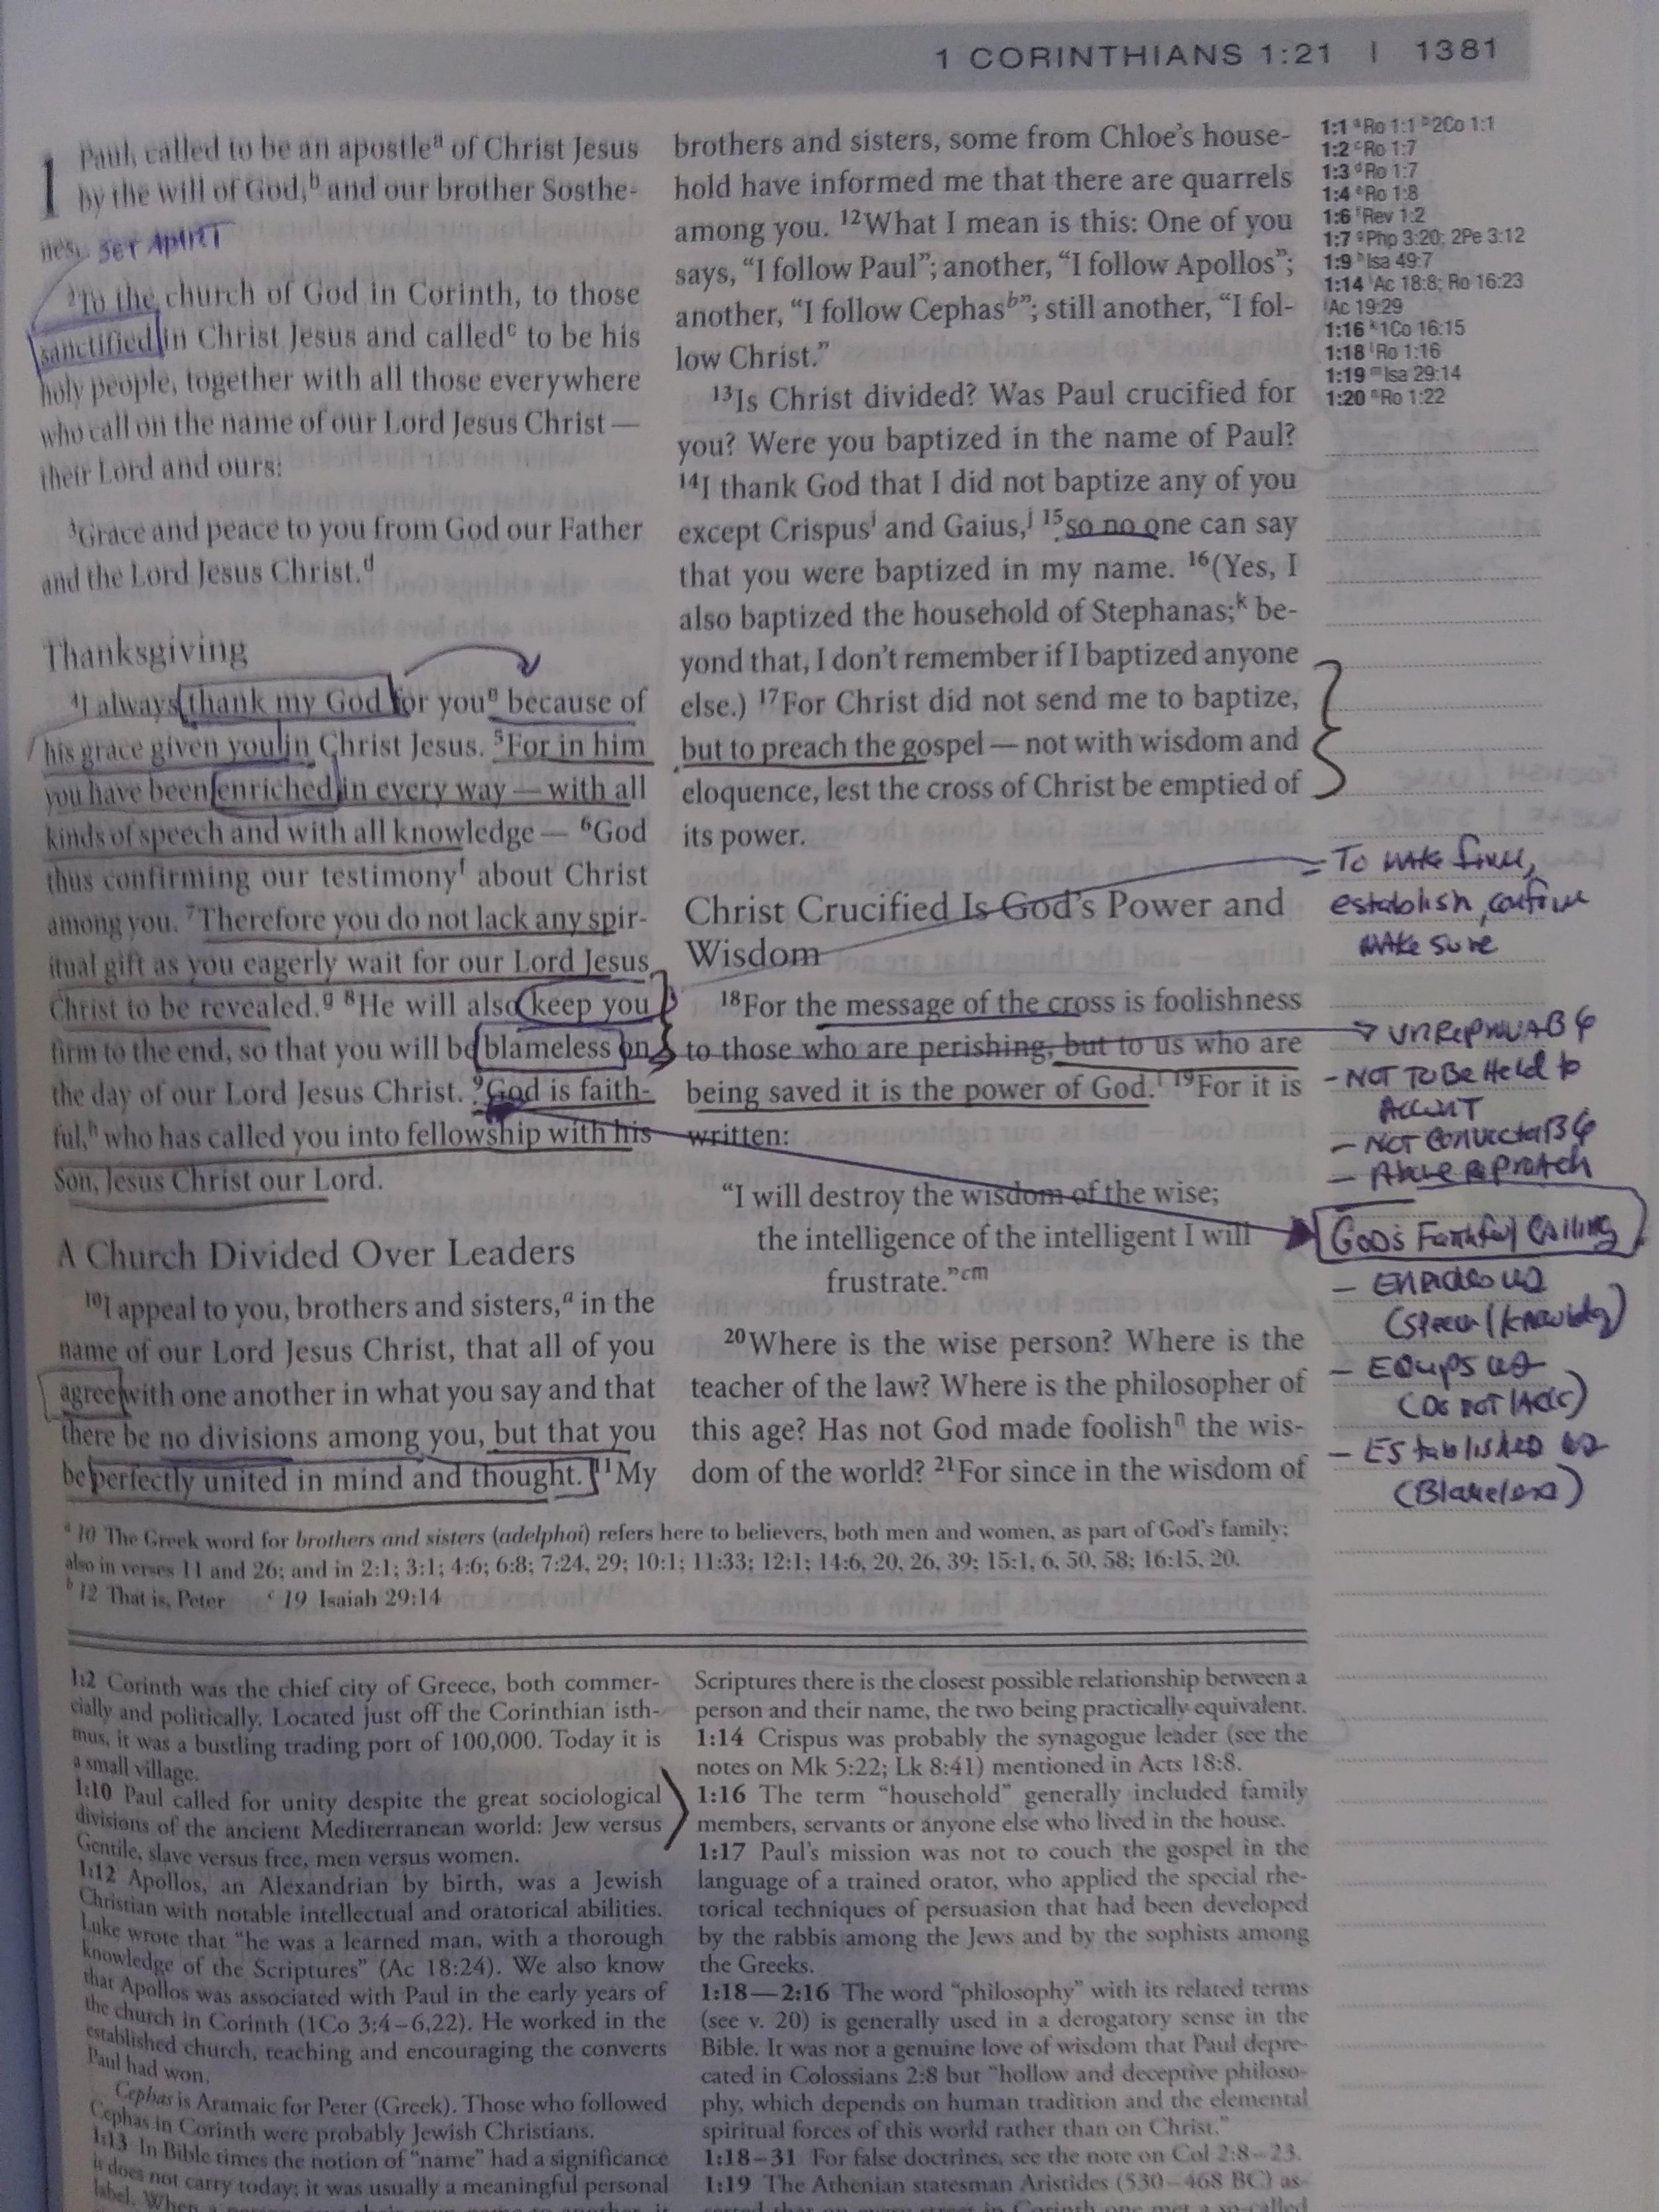 1 CORINTHIANS 1:21 | 1381
1 Paul, called to be an apostleᵃ of Christ Jesus
by the will of God,ᵇ and our brother Sosthe-
nes,
SET APART
²To the church of God in Corinth, to those
sanctified in Christ Jesus and calledᶜ to be his
holy people, together with all those everywhere
who call on the name of our Lord Jesus Christ —
their Lord and ours:
³Grace and peace to you from God our Father
and the Lord Jesus Christ.ᵈ
Thanksgiving
⁴I always thank my God for youᵉ because of
his grace given you in Christ Jesus. ⁵For in him
you have been enriched in every way — with all
kinds of speech and with all knowledge — ⁶God
thus confirming our testimonyᶠ about Christ
among you. ⁷Therefore you do not lack any spir-
itual gift as you eagerly wait for our Lord Jesus
Christ to be revealed.ᵍ ⁸He will also keep you
firm to the end, so that you will be blameless on
the day of our Lord Jesus Christ. ⁹God is faith-
ful,ʰ who has called you into fellowship with his
Son, Jesus Christ our Lord.
A Church Divided Over Leaders
¹⁰I appeal to you, brothers and sisters,ᵃ in the
name of our Lord Jesus Christ, that all of you
agree with one another in what you say and that
there be no divisions among you, but that you
be perfectly united in mind and thought. ¹¹My
brothers and sisters, some from Chloe's house-
hold have informed me that there are quarrels
among you. ¹²What I mean is this: One of you
says, "I follow Paul"; another, "I follow Apollos";
another, "I follow Cephasᵇ"; still another, "I fol-
low Christ."
¹³Is Christ divided? Was Paul crucified for
you? Were you baptized in the name of Paul?
¹⁴I thank God that I did not baptize any of you
except Crispusⁱ and Gaius,ʲ ¹⁵so no one can say
that you were baptized in my name. ¹⁶(Yes, I
also baptized the household of Stephanas;ᵏ be-
yond that, I don't remember if I baptized anyone
else.) ¹⁷For Christ did not send me to baptize,
but to preach the gospel — not with wisdom and
eloquence, lest the cross of Christ be emptied of
its power.
Christ Crucified Is God's Power and
Wisdom
¹⁸For the message of the cross is foolishness
to those who are perishing, but to us who are
being saved it is the power of God.ˡ ¹⁹For it is
written:
"I will destroy the wisdom of the wise;
the intelligence of the intelligent I will
frustrate."ᶜᵐ
²⁰Where is the wise person? Where is the
teacher of the law? Where is the philosopher of
this age? Has not God made foolishⁿ the wis-
dom of the world? ²¹For since in the wisdom of
1:1 ᵃRo 1:1 ᵇ2Co 1:1
1:2 ᶜRo 1:7
1:3 ᵈRo 1:7
1:4 ᵉRo 1:8
1:6 ᶠRev 1:2
1:7 ᵍPhp 3:20; 2Pe 3:12
1:9 ʰIsa 49:7
1:14 ⁱAc 18:8; Ro 16:23
ʲAc 19:29
1:16 ᵏ1Co 16:15
1:18 ˡRo 1:16
1:19 ᵐIsa 29:14
1:20 ⁿRo 1:22
To make firm,
establish, confirm
make sure
- NOT TO Be Held to
ACCOUNT
- Above Reproach
God's Faithful Calling
- Enriches us
(speech/knowledge)
- Equips us
(Do not lack)
- Established us
(Blameless)
ᵃ 10 The Greek word for brothers and sisters (adelphoi) refers here to believers, both men and women, as part of God's family;
also in verses 11 and 26; and in 2:1; 3:1; 4:6; 6:8; 7:24, 29; 10:1; 11:33; 12:1; 14:6, 20, 26, 39; 15:1, 6, 50, 58; 16:15, 20.
ᵇ 12 That is, Peter ᶜ 19 Isaiah 29:14
1:2 Corinth was the chief city of Greece, both commer-
cially and politically. Located just off the Corinthian isth-
mus, it was a bustling trading port of 100,000. Today it is
a small village.
1:10 Paul called for unity despite the great sociological
divisions of the ancient Mediterranean world: Jew versus
Gentile, slave versus free, men versus women.
1:12 Apollos, an Alexandrian by birth, was a Jewish
Christian with notable intellectual and oratorical abilities.
Luke wrote that "he was a learned man, with a thorough
knowledge of the Scriptures" (Ac 18:24). We also know
that Apollos was associated with Paul in the early years of
the church in Corinth (1Co 3:4–6,22). He worked in the
established church, teaching and encouraging the converts
Paul had won.
Cephas is Aramaic for Peter (Greek). Those who followed
Cephas in Corinth were probably Jewish Christians.
1:13 In Bible times the notion of "name" had a significance
it does not carry today; it was usually a meaningful personal
label. When
Scriptures there is the closest possible relationship between a
person and their name, the two being practically equivalent.
1:14 Crispus was probably the synagogue leader (see the
notes on Mk 5:22; Lk 8:41) mentioned in Acts 18:8.
1:16 The term "household" generally included family
members, servants or anyone else who lived in the house.
1:17 Paul's mission was not to couch the gospel in the
language of a trained orator, who applied the special rhe-
torical techniques of persuasion that had been developed
by the rabbis among the Jews and by the sophists among
the Greeks.
1:18—2:16 The word "philosophy" with its related terms
(see v. 20) is generally used in a derogatory sense in the
Bible. It was not a genuine love of wisdom that Paul depre-
cated in Colossians 2:8 but "hollow and deceptive philoso-
phy, which depends on human tradition and the elemental
spiritual forces of this world rather than on Christ."
1:18–31 For false doctrines, see the note on Col 2:8–23.
1:19 The Athenian statesman Aristides (530–468 BC) as-